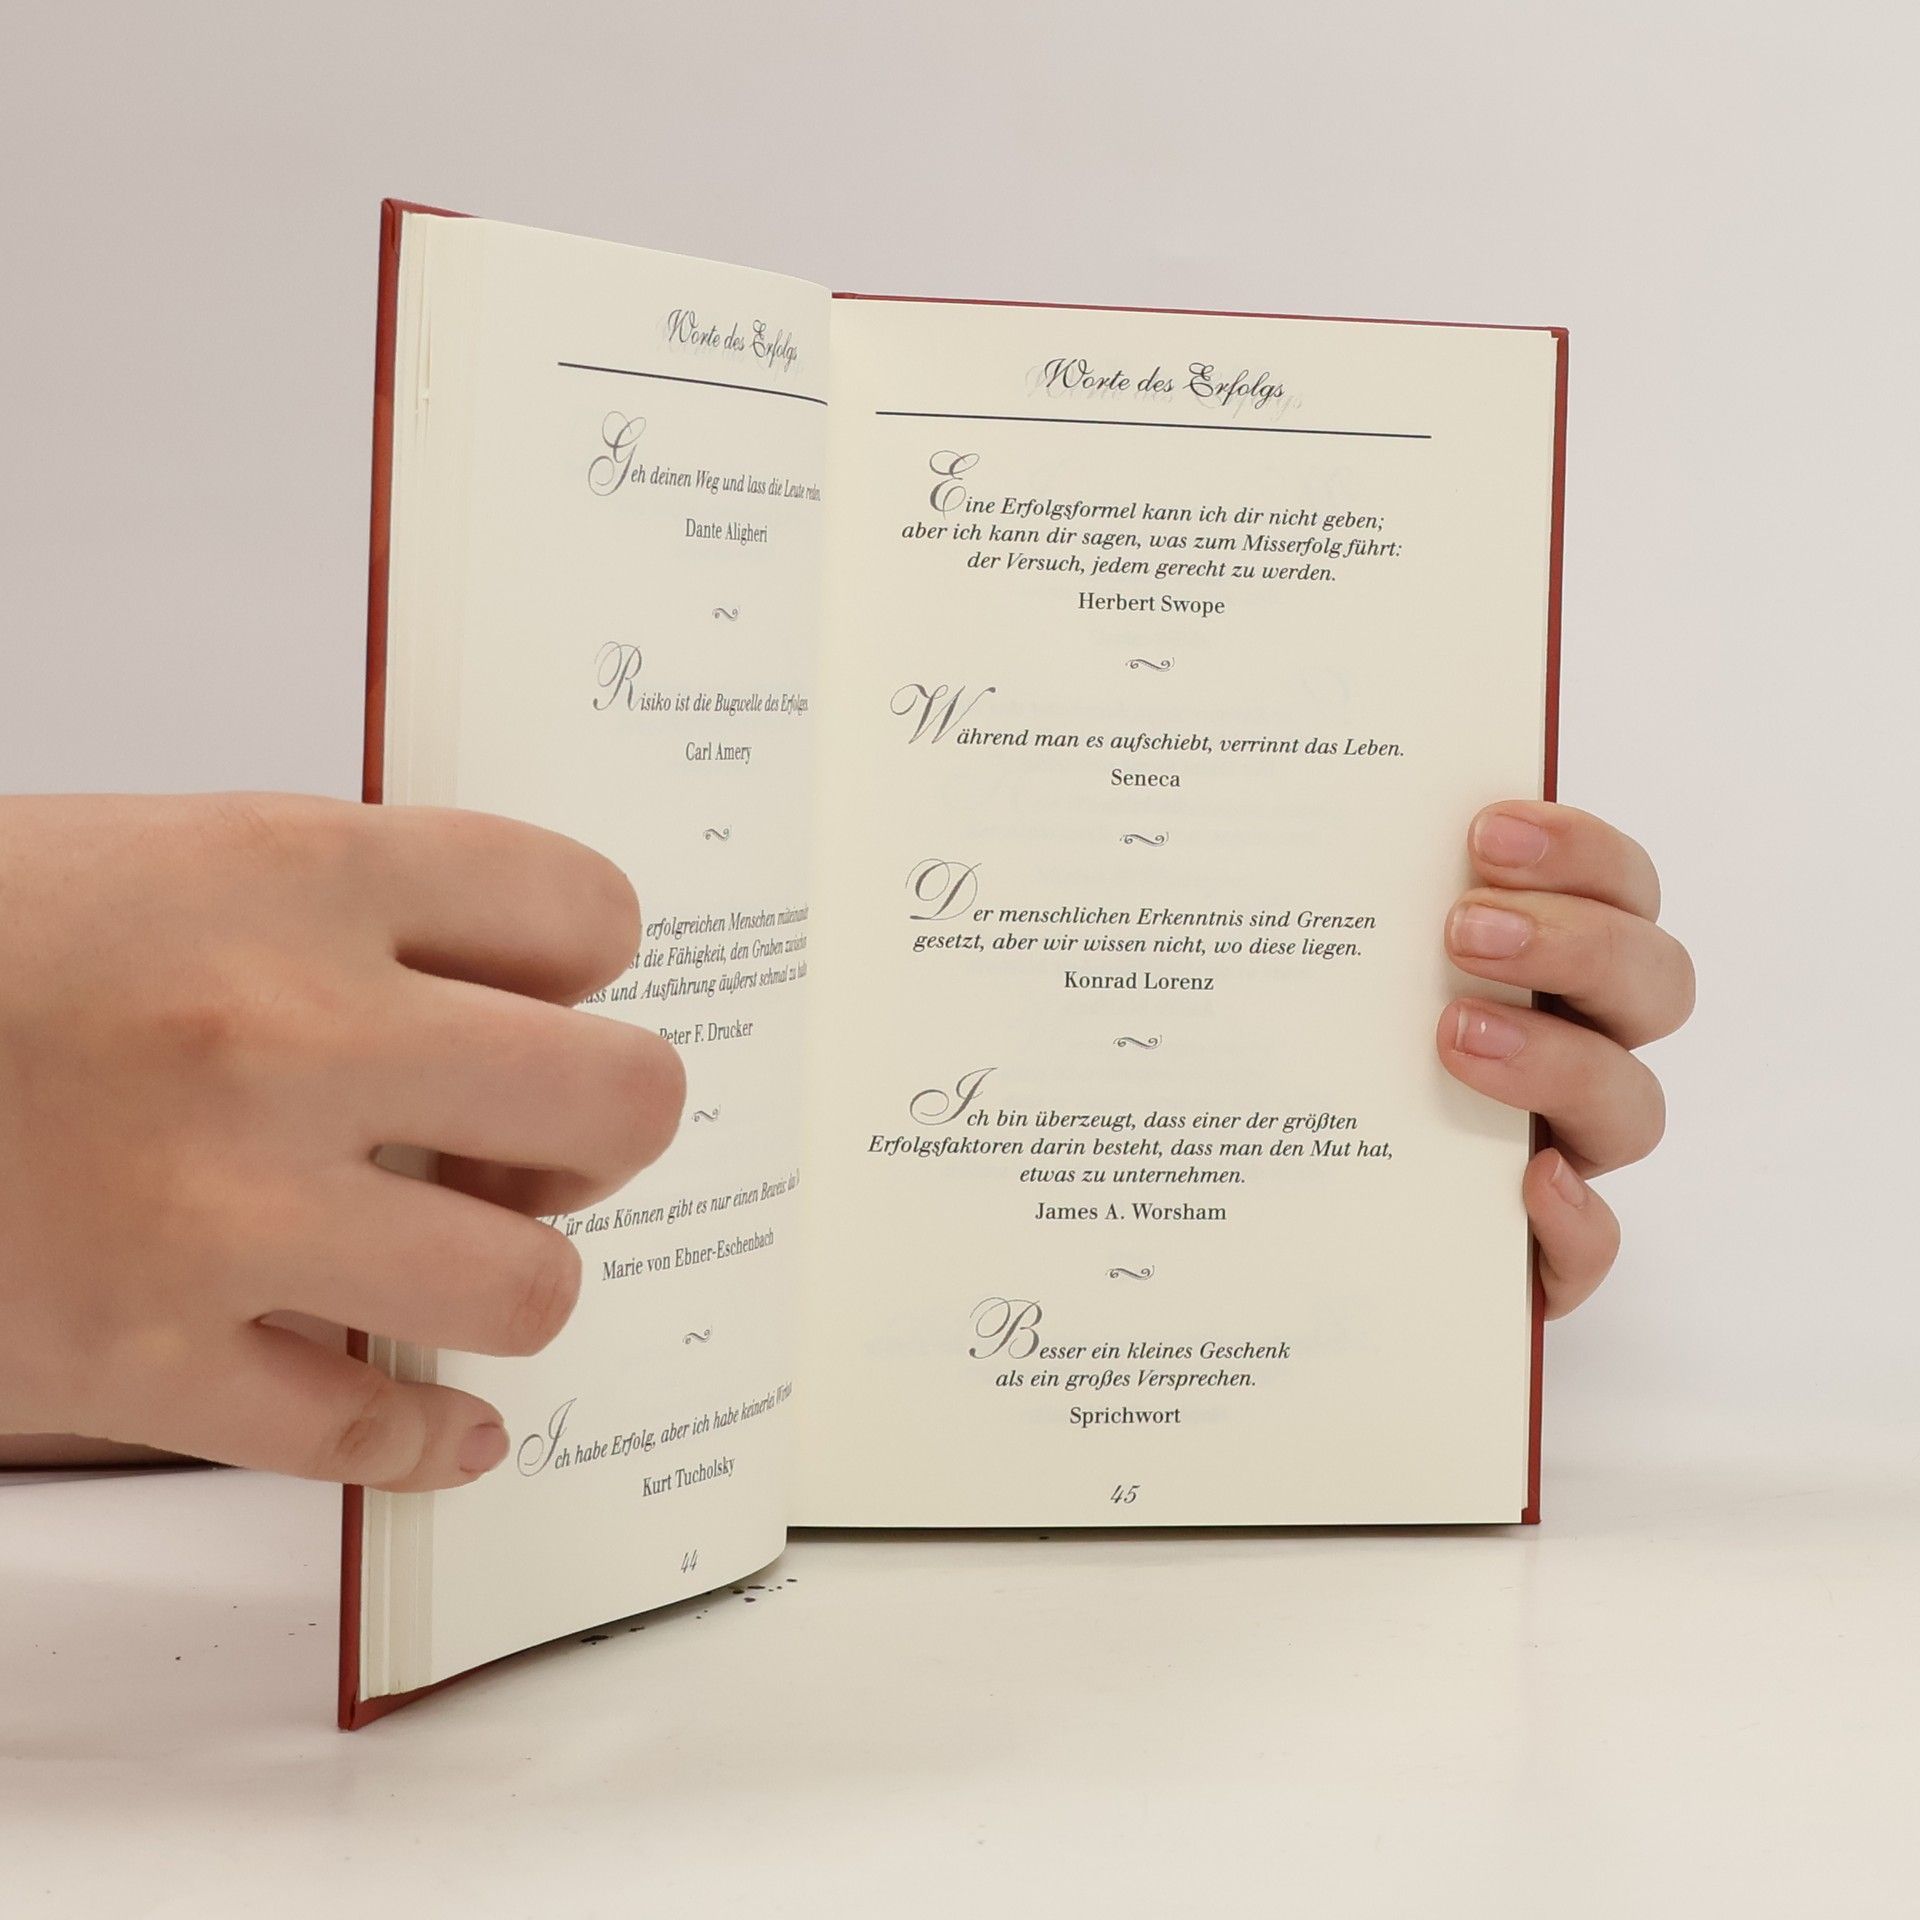 Worte des Erfolgs
Geh deinen Weg und lass die Leute reden.
Dante Aligheri
Risiko ist die Bugwelle des Erfolges.
Carl Amery
erfolgreichen Menschen miteinander
die Fähigkeit, den Graben zwischen
und Ausführung äußerst schmal zu halten
Peter F. Drucker
Für das Können gibt es nur einen Beweis: das
Marie von Ebner-Eschenbach
Ich habe Erfolg, aber ich habe keinerlei
Kurt Tucholsky
44
Worte des Erfolgs
Eine Erfolgsformel kann ich dir nicht geben;
aber ich kann dir sagen, was zum Misserfolg führt:
der Versuch, jedem gerecht zu werden.
Herbert Swope
Während man es aufschiebt, verrinnt das Leben.
Seneca
Der menschlichen Erkenntnis sind Grenzen
gesetzt, aber wir wissen nicht, wo diese liegen.
Konrad Lorenz
Ich bin überzeugt, dass einer der größten
Erfolgsfaktoren darin besteht, dass man den Mut hat,
etwas zu unternehmen.
James A. Worsham
Besser ein kleines Geschenk
als ein großes Versprechen.
Sprichwort
45